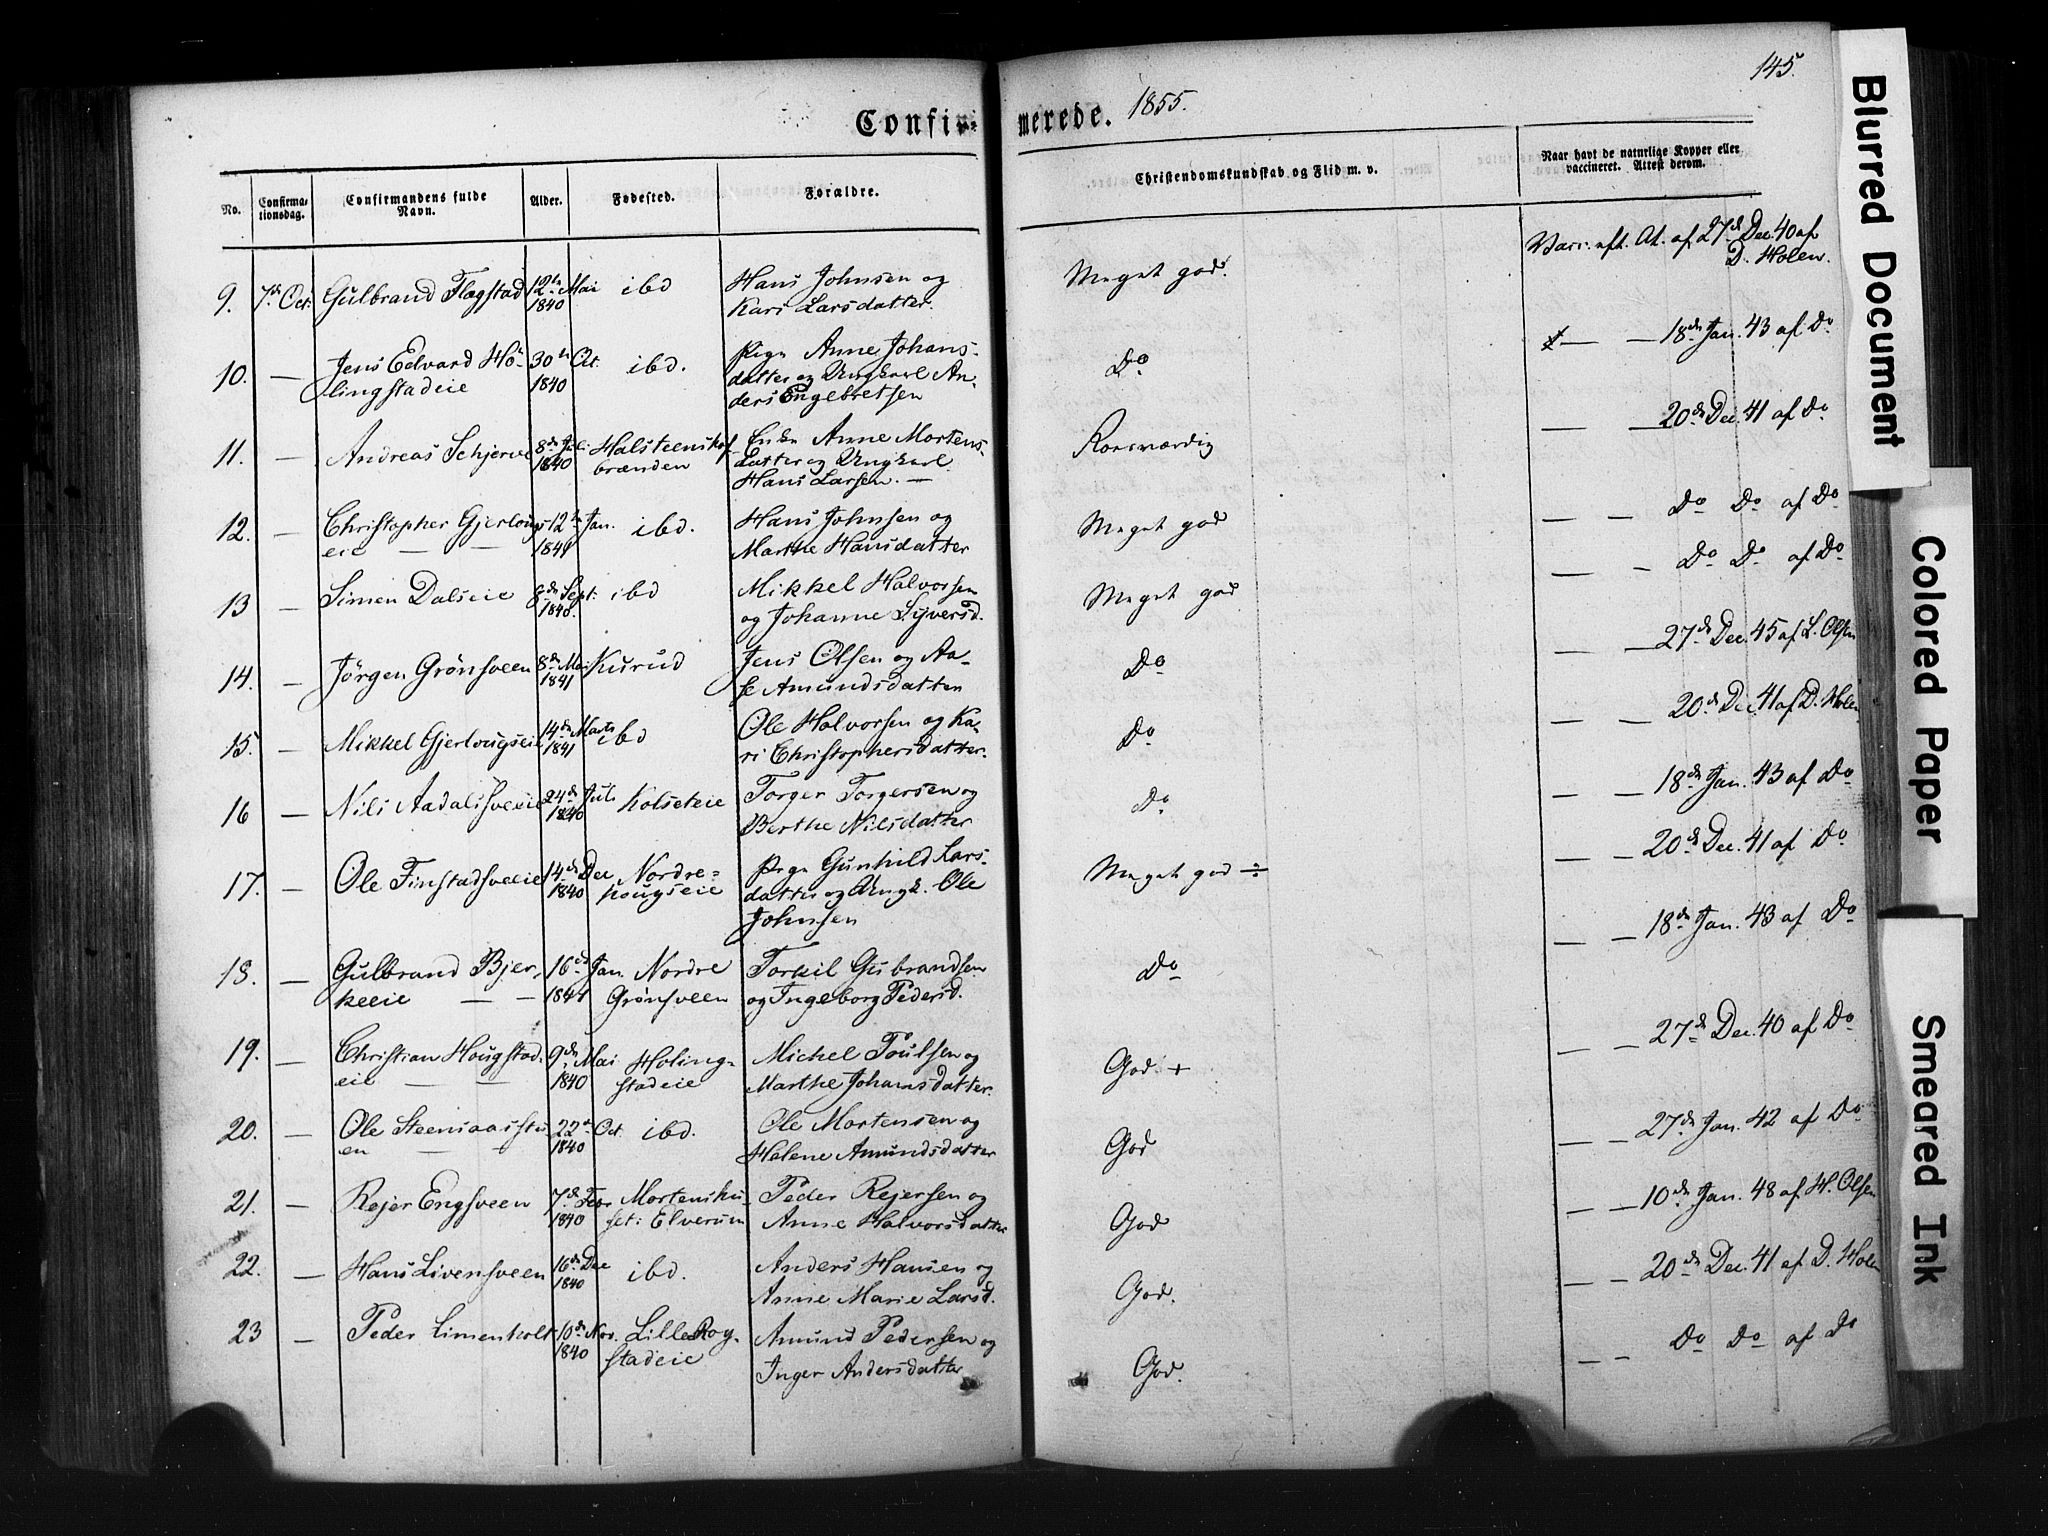 145.
Confirmerede. 1855.
No. Confirmationsdag. Confirmandens fulde Navn. Alder. Fødested. Forældre. Christendomskundskab og Flid m. v. Naar havt de naturlige Kopper eller vaccineret. Attest derom.
9. 7de Oct. Gulbrand Flagstad 12te Mai ibd Hans Johnsen og Meget god. Vacc. eft. At. af 27de Dec. 40 af
1840 Kari Larsdatter. D. Holen.
10. — Jens Edvard Hö- 30te Oct. ibd. Pige Anne Johans- Do — — 18de Jan. 43 af Do
lingstadeie 1840 datter og Ungkarl An-
ders Engebretsen
11. — Andreas Schjerve 8de Juli Halsteenshof- Enke Anne Mortens- Roesværdig — — 20de Dec. 41 af Do
1840 brænden datter og Ungkarl
Hans Larsen. —
12. — Christopher Gjerloug- 12te Jan. ibd. Hans Johnsen og Meget god — — Do Do af Do
eie — — 1841 Marthe Hansdatter
13 — Simen Dalseie 8de Sept. ibd Mikkel Halvorsen Meget god — — Do Do af Do
1840. og Johanne Syversd.
14. — Jörgen Grönsveen 8de Mai Kurud Jens Olsen og Aa- Do — — 27de Dec. 45 af L. Olsen
1841 se Amundsdatter
15. — Mikkel Gjerlougseie 14de Marts ibd Ole Halvorsen og Ka- Do — — 20de Dec. 41 af D. Holen
1841 ri Christophersdatter.
16 — Nils Aadalssveeie 24de Juli Kolseteie Torger Torgersen og Do — — 18de Jan. 43 af Do
1840 Berthe Nilsdatter
17. — Ole Finstadsveeie 14de Dec Nordre- Pige Gunhild Lars- Meget god ÷ — — 20de Dec. 41 af Do
1840 hougseie datter og Ungk. Ole
Johnsen
18. — Gulbrand Bjer- 16de Jan. Nordre Torkil Gulbrandsen Do — — 18de Jan. 43 af Do
keeie — — 1841 Grönsveen og Ingeborg Pedersd.
19. — Christian Hougstad- 9de Mai Holing- Michel Poulsen og God + — — 27de Dec. 40 af Do
eie — — 1840 stadeie Marthe Johansdatter.
20. — Ole Steensaasstu- 22de Oct. ibd. Ole Mortensen og God — — 27de Jan. 42 af Do
en — — 1840 Halene Amundsdatter
21. — Rejer Engsveen 7de Febr Mortenshu- Peder Rejersen og God — — 10de Jan. 48 af H. Olsen
1840 set i Elverum Anne Halvorsdatter
22. — Hans Livensveen 16de Dec ibd. Anders Hansen og God. — — 20de Dec. 41 af D. Holen
1840 Anne Marie Larsd.
23 — Peder Limenholt 10de Nov. Lille Rog- Amund Pedersen og God. — — Do Do af Do
1840 stadeie Inger Andersdatter
Blurred Document
Colored Paper
Smeared Ink